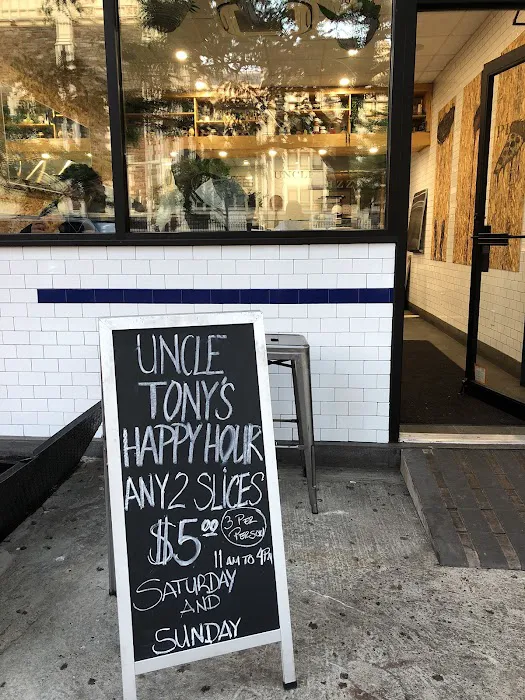 UNCLE
UNCLE
TONY'S
HAPPY HOUR
ANY 2 SLICES
$5.00
3 PER
PERSON
11 AM TO 4PM
SATURDAY
AND
SUNDAY